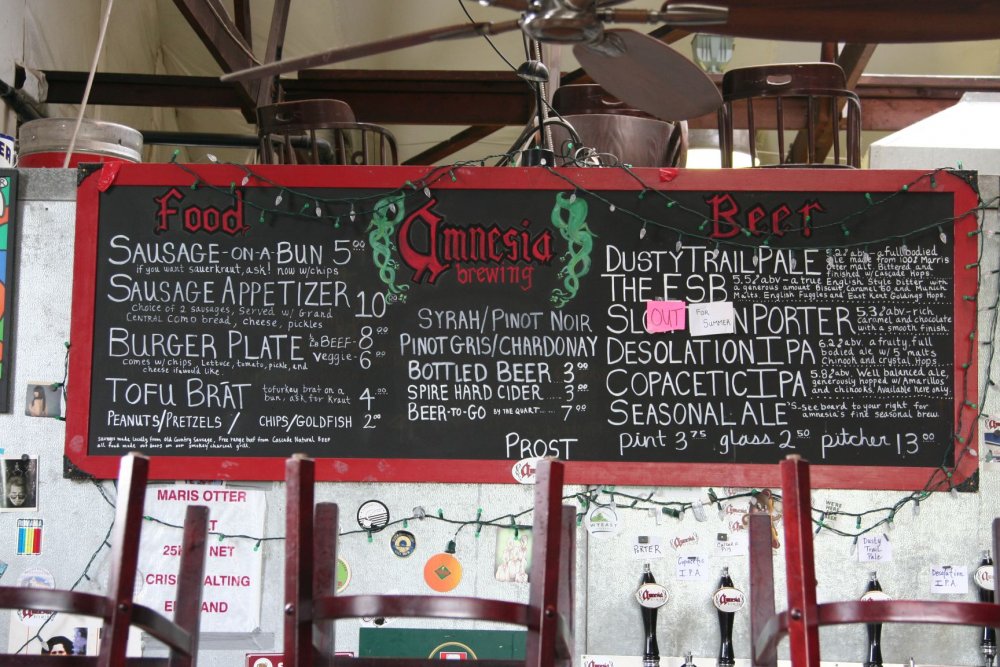 Food
SAUSAGE-ON-A-BUN 5.00
if you want sauerkraut, ask! now w/chips
SAUSAGE APPETIZER 10.00
CHOICE OF 2 SAUSAGES, SERVED w/ GRAND
CENTRAL COMO bread, cheese, pickles
BURGER PLATE BEEF- 8.00
veggie- 6.00
Comes w/ chips, lettuce, tomato, pickle, and
cheese if would like.
TOFU BRAT tofurkey brat on a
bun, ask for Kraut 4.00
PEANUTS/PRETZELS / CHIPS/GOLDFISH 2.00
Sausage made locally from Old Country Sausage, Free range beef from Cascade Natural BEEF
all food made out doors on our smokey charcoal grill.
Amnesia
brewing
SYRAH/PINOT NOIR
PINOT GRIS/CHARDONAY
BOTTLED BEER ... 3.00
SPIRE HARD CIDER ... 3.00
BEER-TO-GO BY THE QUART ..... 7.00
PROST
Beer
DUSTY TRAIL PALE 5.2% abv - a full bodied
ale made from 100% Marris
Otter malt. Bittered and
finished w/ Cascade Hops.
THE ESB 5.5% abv - a true English Style bitter with
a generous amount Biscuit, Caramel 80 and Munich
Malts. English Fuggles and East Kent Goldings Hops.
SLO N PORTER 5.3% abv - rich
caramel and chocolate
with a smooth finish.
OUT
FOR
SUMMER
DESOLATION IPA 6.2% abv, a fruity, full
bodied ale w/ 5 malts
Chinook and Crystal Hops.
COPACETIC IPA 5.8% abv. Well balanced ale,
generously hopped w/ Amarillos
and chinooks. Available here only.
SEASONAL ALE'S - see board to your right for
amnesia's fine seasonal brew.
pint 3.75 glass 2.50 pitcher 13.00
MARIS OTTER
MALT
25 NET
CRISP MALTING
ENGLAND
PORTER
Copacetic
I.P.A
Dusty
Trail
Pale
Desolation
I.P.A
Amnesia
Amnesia